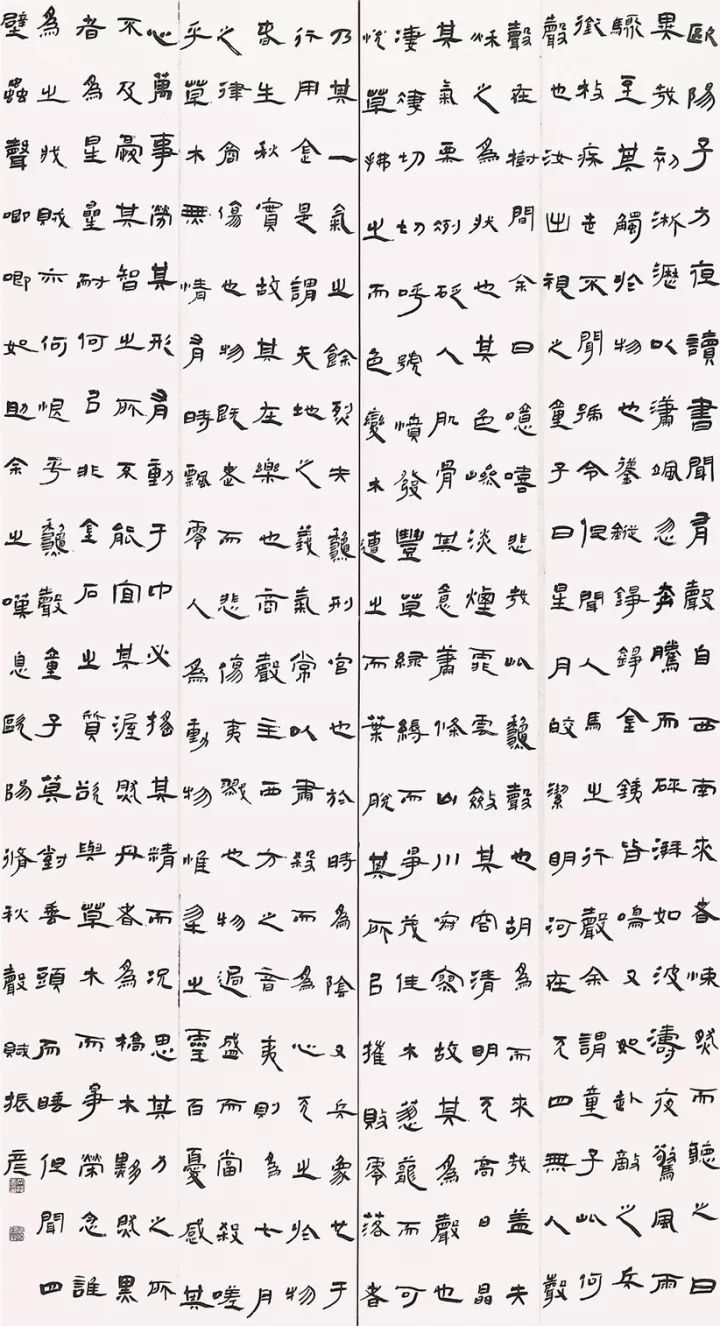 歐陽子方夜讀書聞有聲自西南來者悚然而聽之曰
異哉初淅瀝以瀟颯忽奔騰而砰湃如波濤夜驚風雨
驟至其觸於物也鏦鏦錚錚金鐵皆鳴又如赴敵之兵
銜枚疾走不聞號令但聞人馬之行聲余謂童子此何
聲也汝出視之童子曰星月皎潔明河在天四無人聲
聲在樹間余曰噫嘻悲哉此秋聲也胡為而來哉蓋夫
秋之為狀也其色慘淡煙霏雲斂其容清明天高日晶
其氣栗冽砭人肌骨其意蕭條山川寂寥故其為聲也
淒淒切切呼號憤發豐草綠縟而爭茂佳木蔥蘢而可
悅草拂之而色變木遭之而葉脫其所以摧敗零落者
乃其一氣之餘烈夫秋刑官也於時為陰又兵象也于
行用金是謂天地之義氣常以肅殺而為心天之於物
春生秋實故其在樂也商聲主西方之音夷則為七月
之律商傷也物既老而悲傷夷戮也物過盛而當殺嗟
乎草木無情有時飄零人為動物惟之靈百憂感其
心萬事勞其形有動于中必搖其精而況思其力之所
不及憂其智之所不能宜其渥然丹者為槁木黟然黑
者為星星耐何以非金石之質欲與草木而爭榮念誰
為之戕賊亦何恨乎秋聲童子莫對垂頭而睡但聞四
壁蟲聲唧唧如助余之嘆息歐陽脩秋聲賦振彥